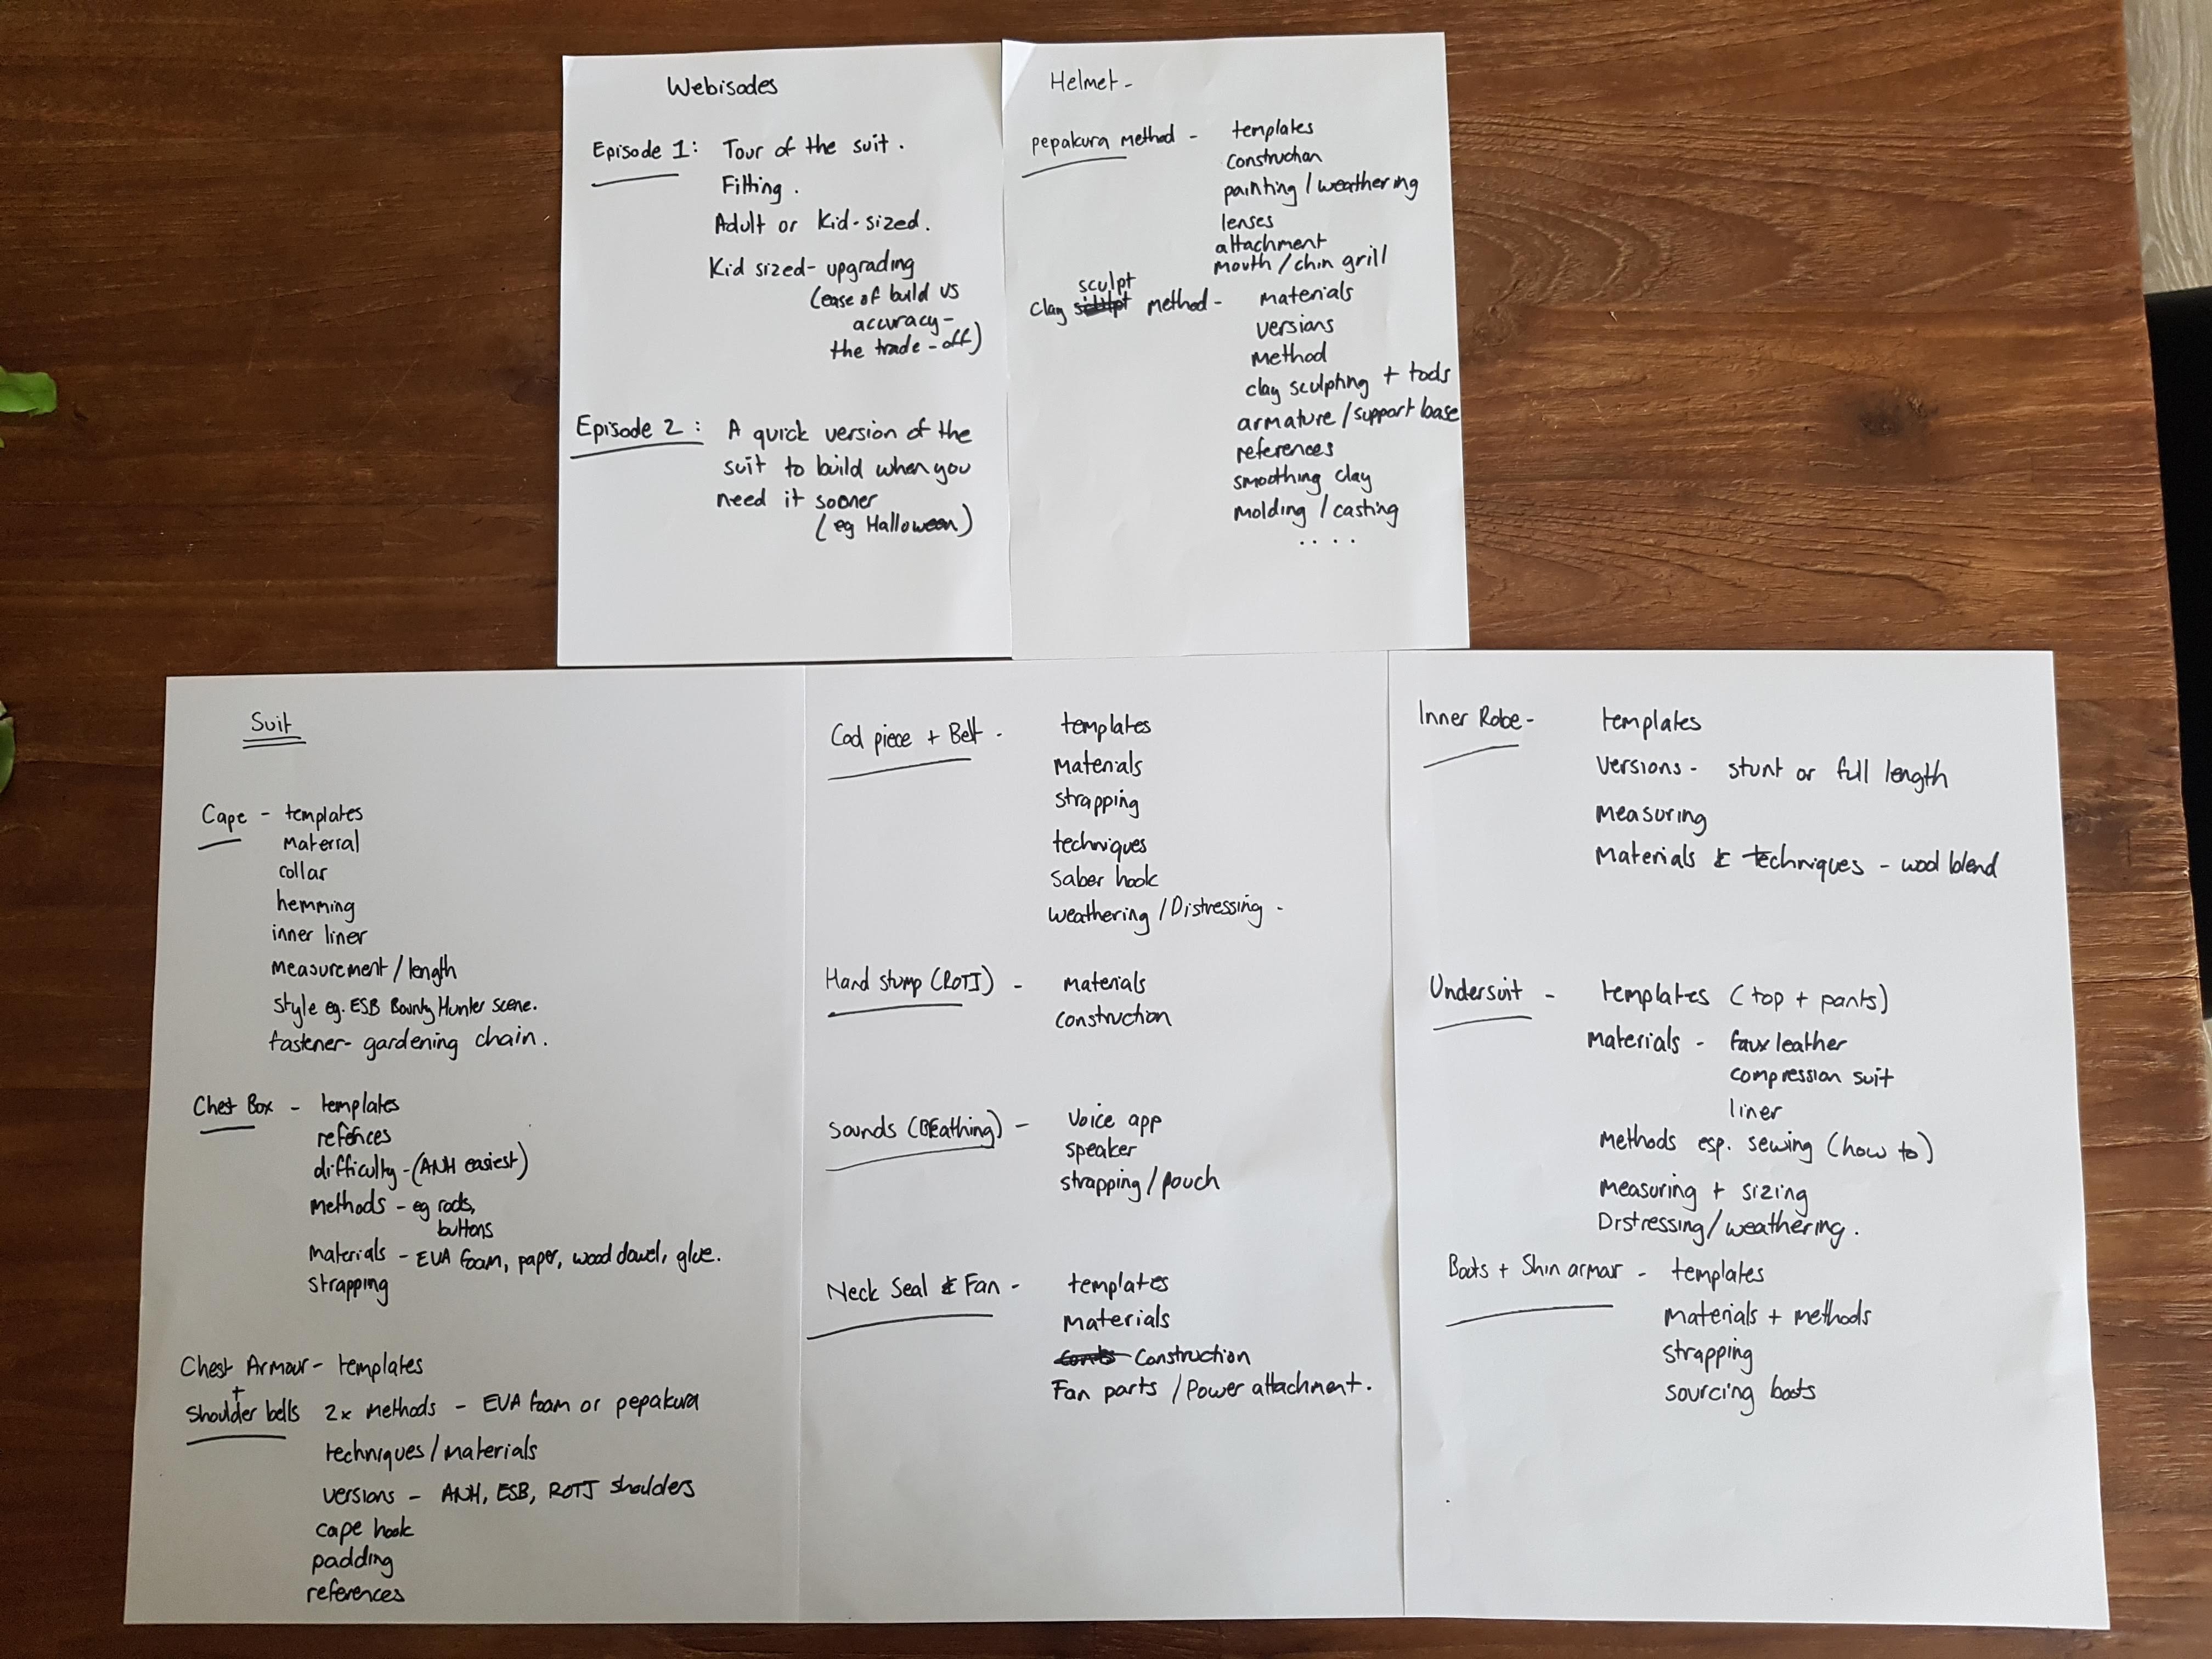 Webisodes
Episode 1: Tour of the suit.
Fitting.
Adult or Kid-sized.
Kid sized - upgrading
(ease of build vs
accuracy -
the trade-off)
Episode 2: A quick version of the
suit to build when you
need it sooner
(eg Halloween)
Helmet -
pepakura method - templates
construction
painting / weathering
lenses
attachment
mouth / chin grill
sculpt
clay method - materials
versions
method
clay sculpting + tools
armature / support base
references
smoothing clay
molding / casting
. . . .
Suit
Cape - templates
material
collar
hemming
inner liner
measurement / length
style eg. ESB Bounty Hunter scene.
fastener - gardening chain.
Chest Box - templates
refences
difficulty - (ANH easiest)
methods - eg rods,
buttons
materials - EVA foam, paper, wood dowel, glue.
strapping
Chest Armour - templates
+
Shoulder bells 2x methods - EVA foam or pepakura
techniques / materials
versions - ANH, ESB, ROTJ shoulders
cape hook
padding
references
Cod piece + Belt - templates
materials
strapping
techniques
saber hook
weathering / Distressing -
Hand stump (ROTJ) - materials
construction
Sounds (BEathing) - Voice app
speaker
strapping / pouch
Neck Seal & Fan - templates
materials
Construction
Fan parts / Power attachment.
Inner Robe - templates
Versions - stunt or full length
measuring
Materials & techniques - wool blend
Undersuit - templates (top + pants)
materials - faux leather
compression suit
liner
methods esp. sewing (how to)
measuring + sizing
Distressing / weathering.
Boots + Shin armor - templates
materials + methods
strapping
sourcing boots